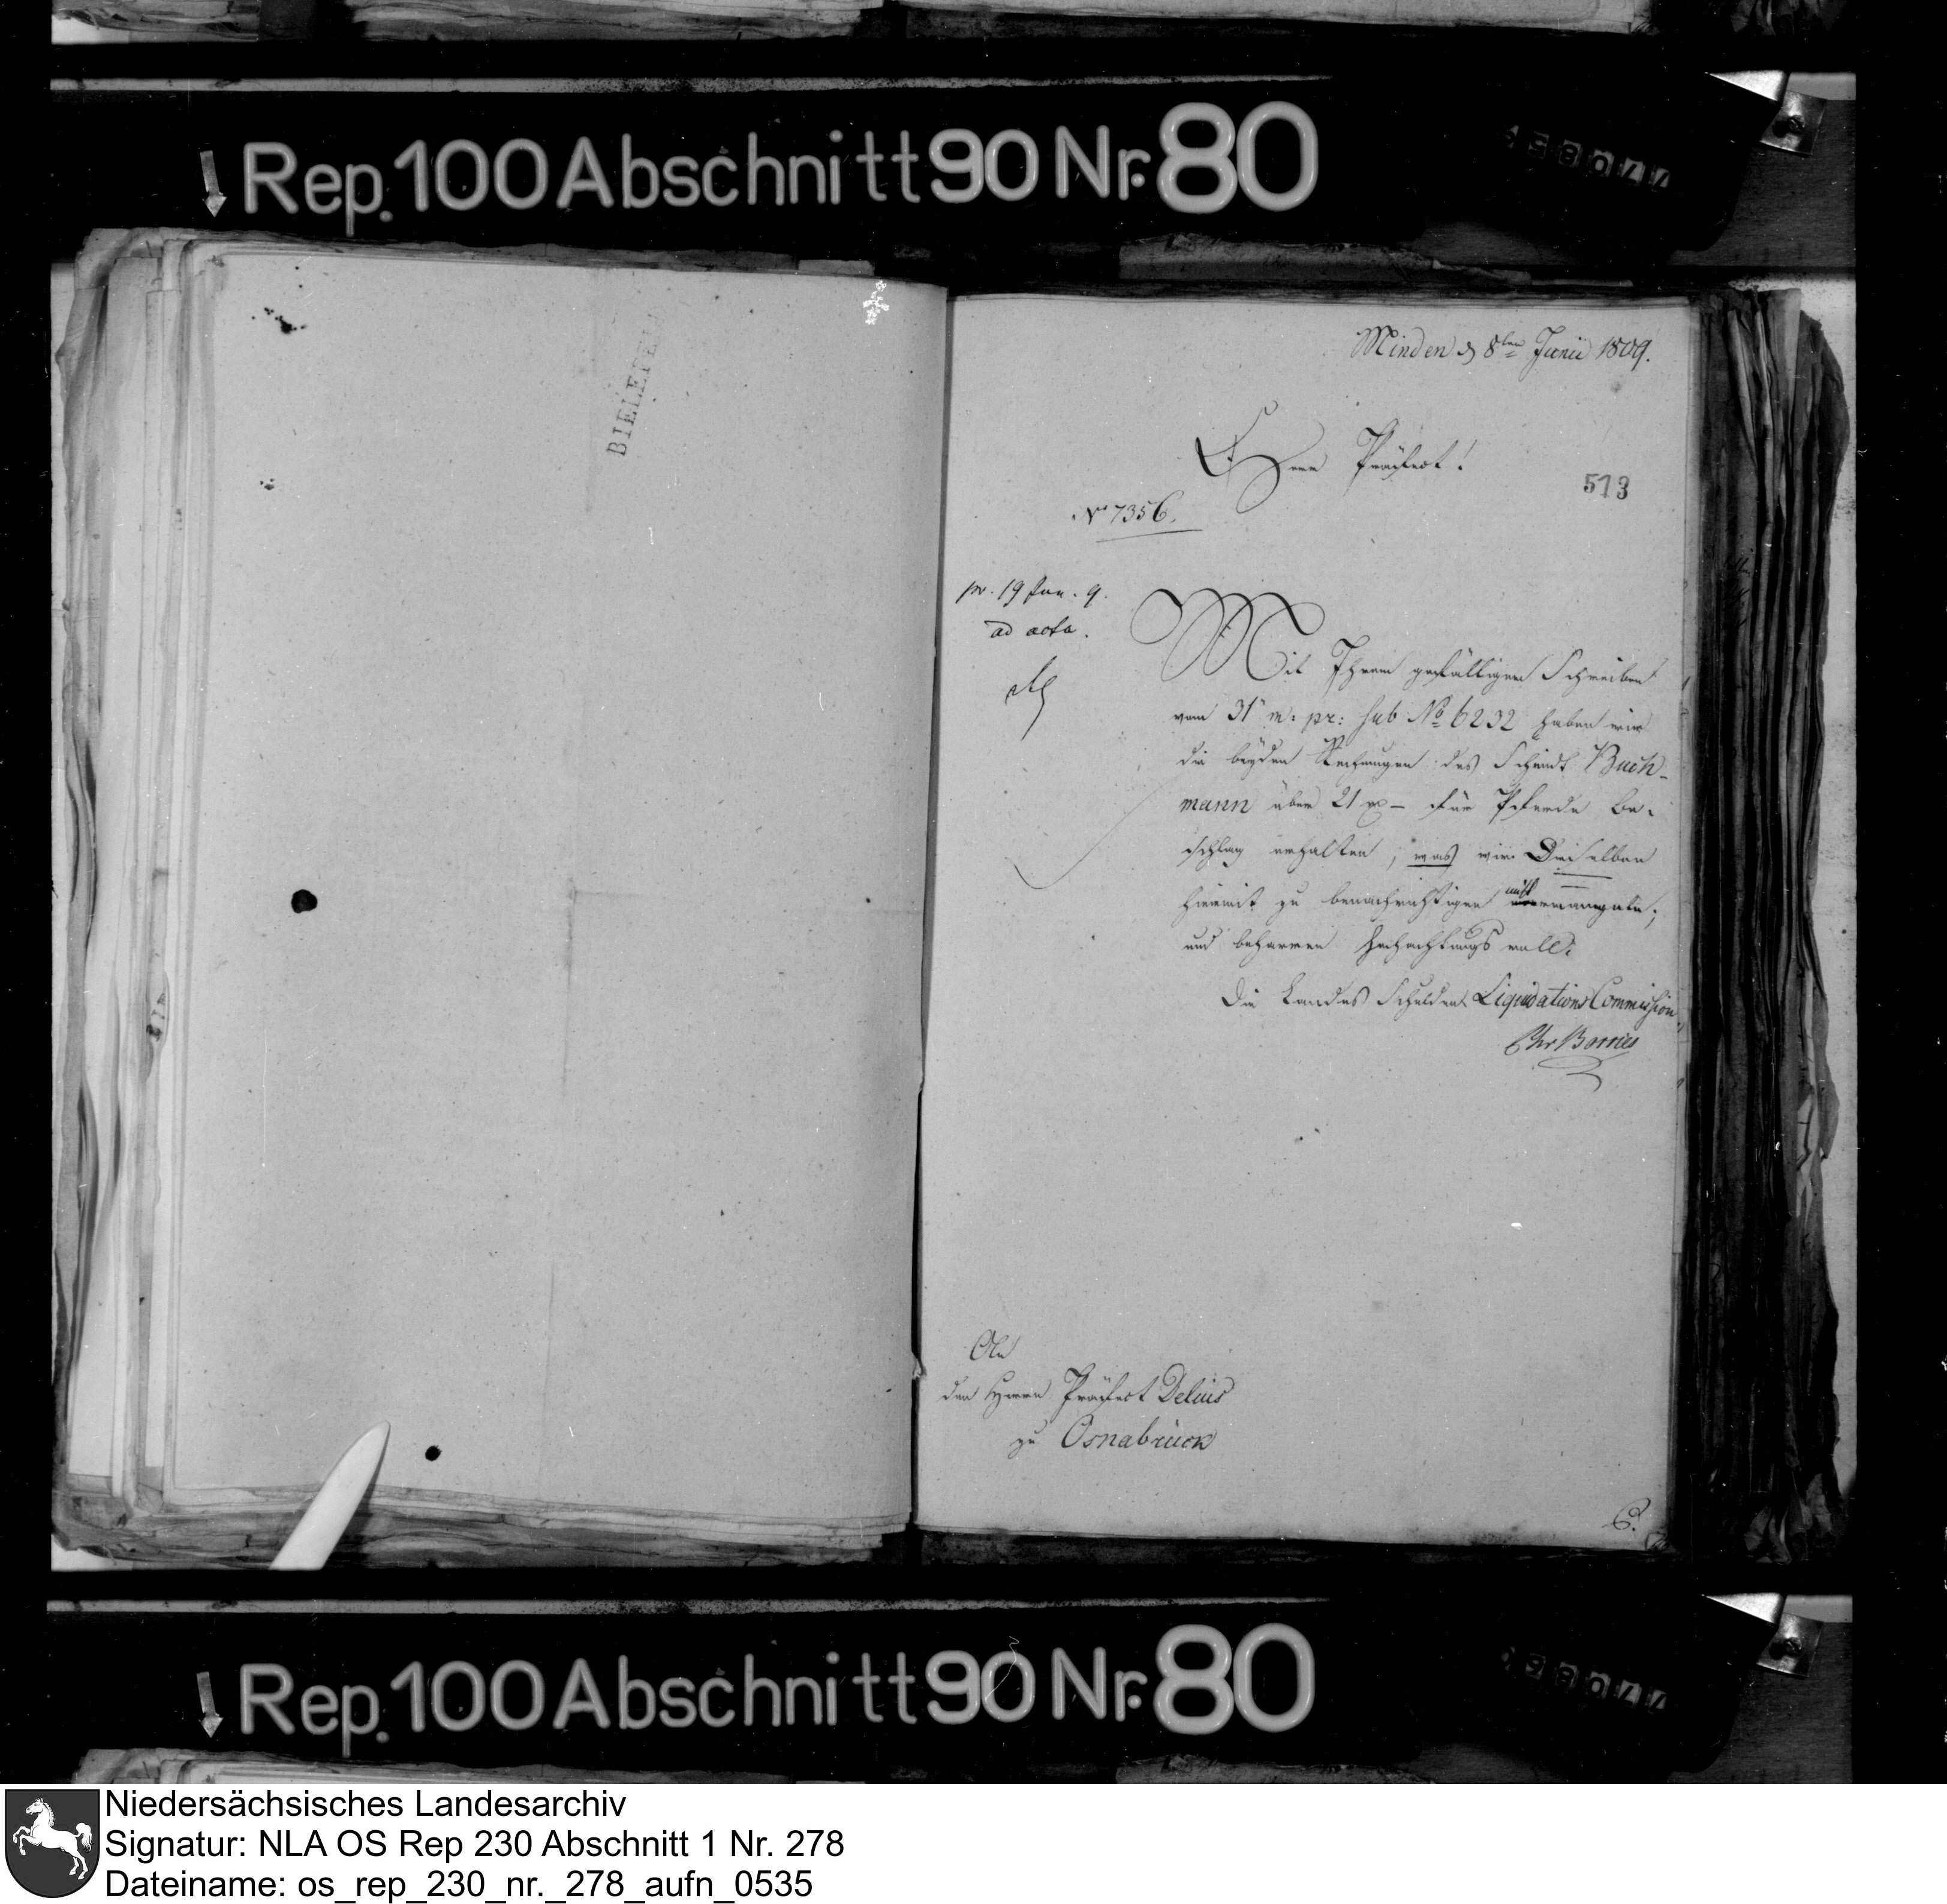 Rep. 100 Abschnitt 90 Nr. 80
BIELEFELD
Minden d 8ten Junii 1809.
Herr Präfect!
513
No 7356.
pr. 19 Jun. 9.
ad acta.
Mit Ihrem gefälligen Schreiben
vom 31n m: pr: sub No 6232 haben wir
die beyden Rechnungen des Schmidt Buch-
mann über 21 für Pferde be-
schlag erhalten, was wir Denselben
hiermit zu benachrichtigen nicht ermangeln;
und beharren Hochachtungsvoll.
Die Landes Schulden Liquidations Commission
Borries
An
den Herrn Präfect Delius
zu Osnabrück
Rep. 100 Abschnitt 90 Nr. 80
Niedersächsisches Landesarchiv
Signatur: NLA OS Rep 230 Abschnitt 1 Nr. 278
Dateiname: os_rep_230_nr._278_aufn_0535